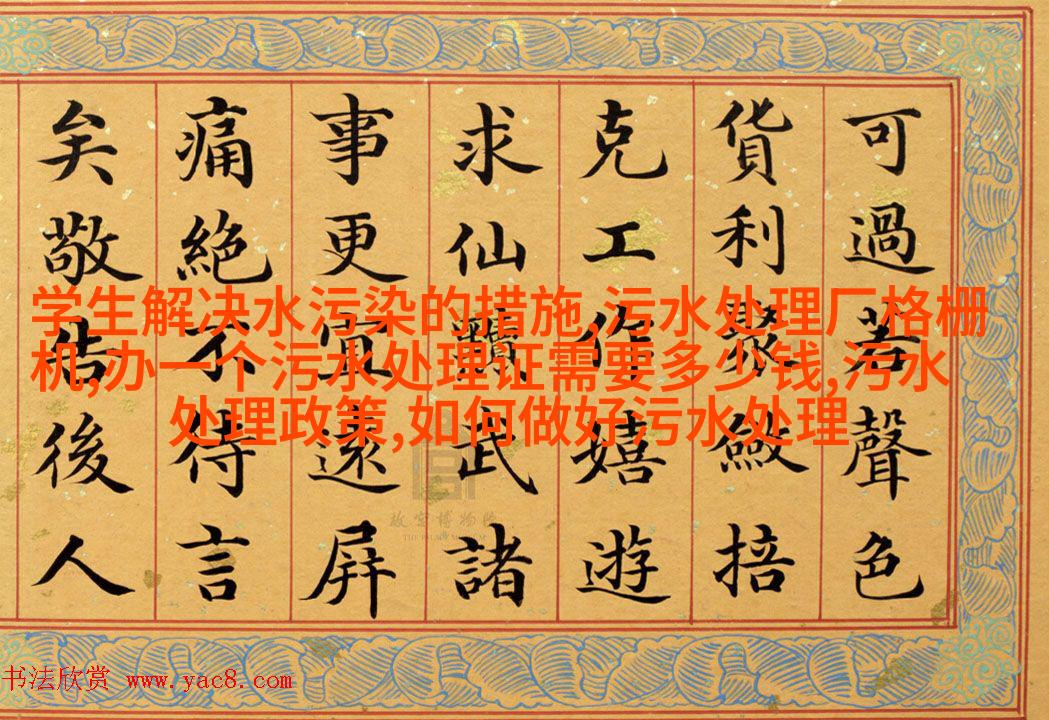 可過若聲色
貨利聚斂掊
克工作嬉遊
求仙黷武諸
事更宜遠屏
痛絕不待言
矣敬告後人
学生解决水污染的措施,污水处理厂格栅
机,办一个污水处理证需要多少钱,污水
处理政策,如何做好污水处理
故宫博物院
THE PALACE MUSEUM
书法欣赏 www.yac8.com